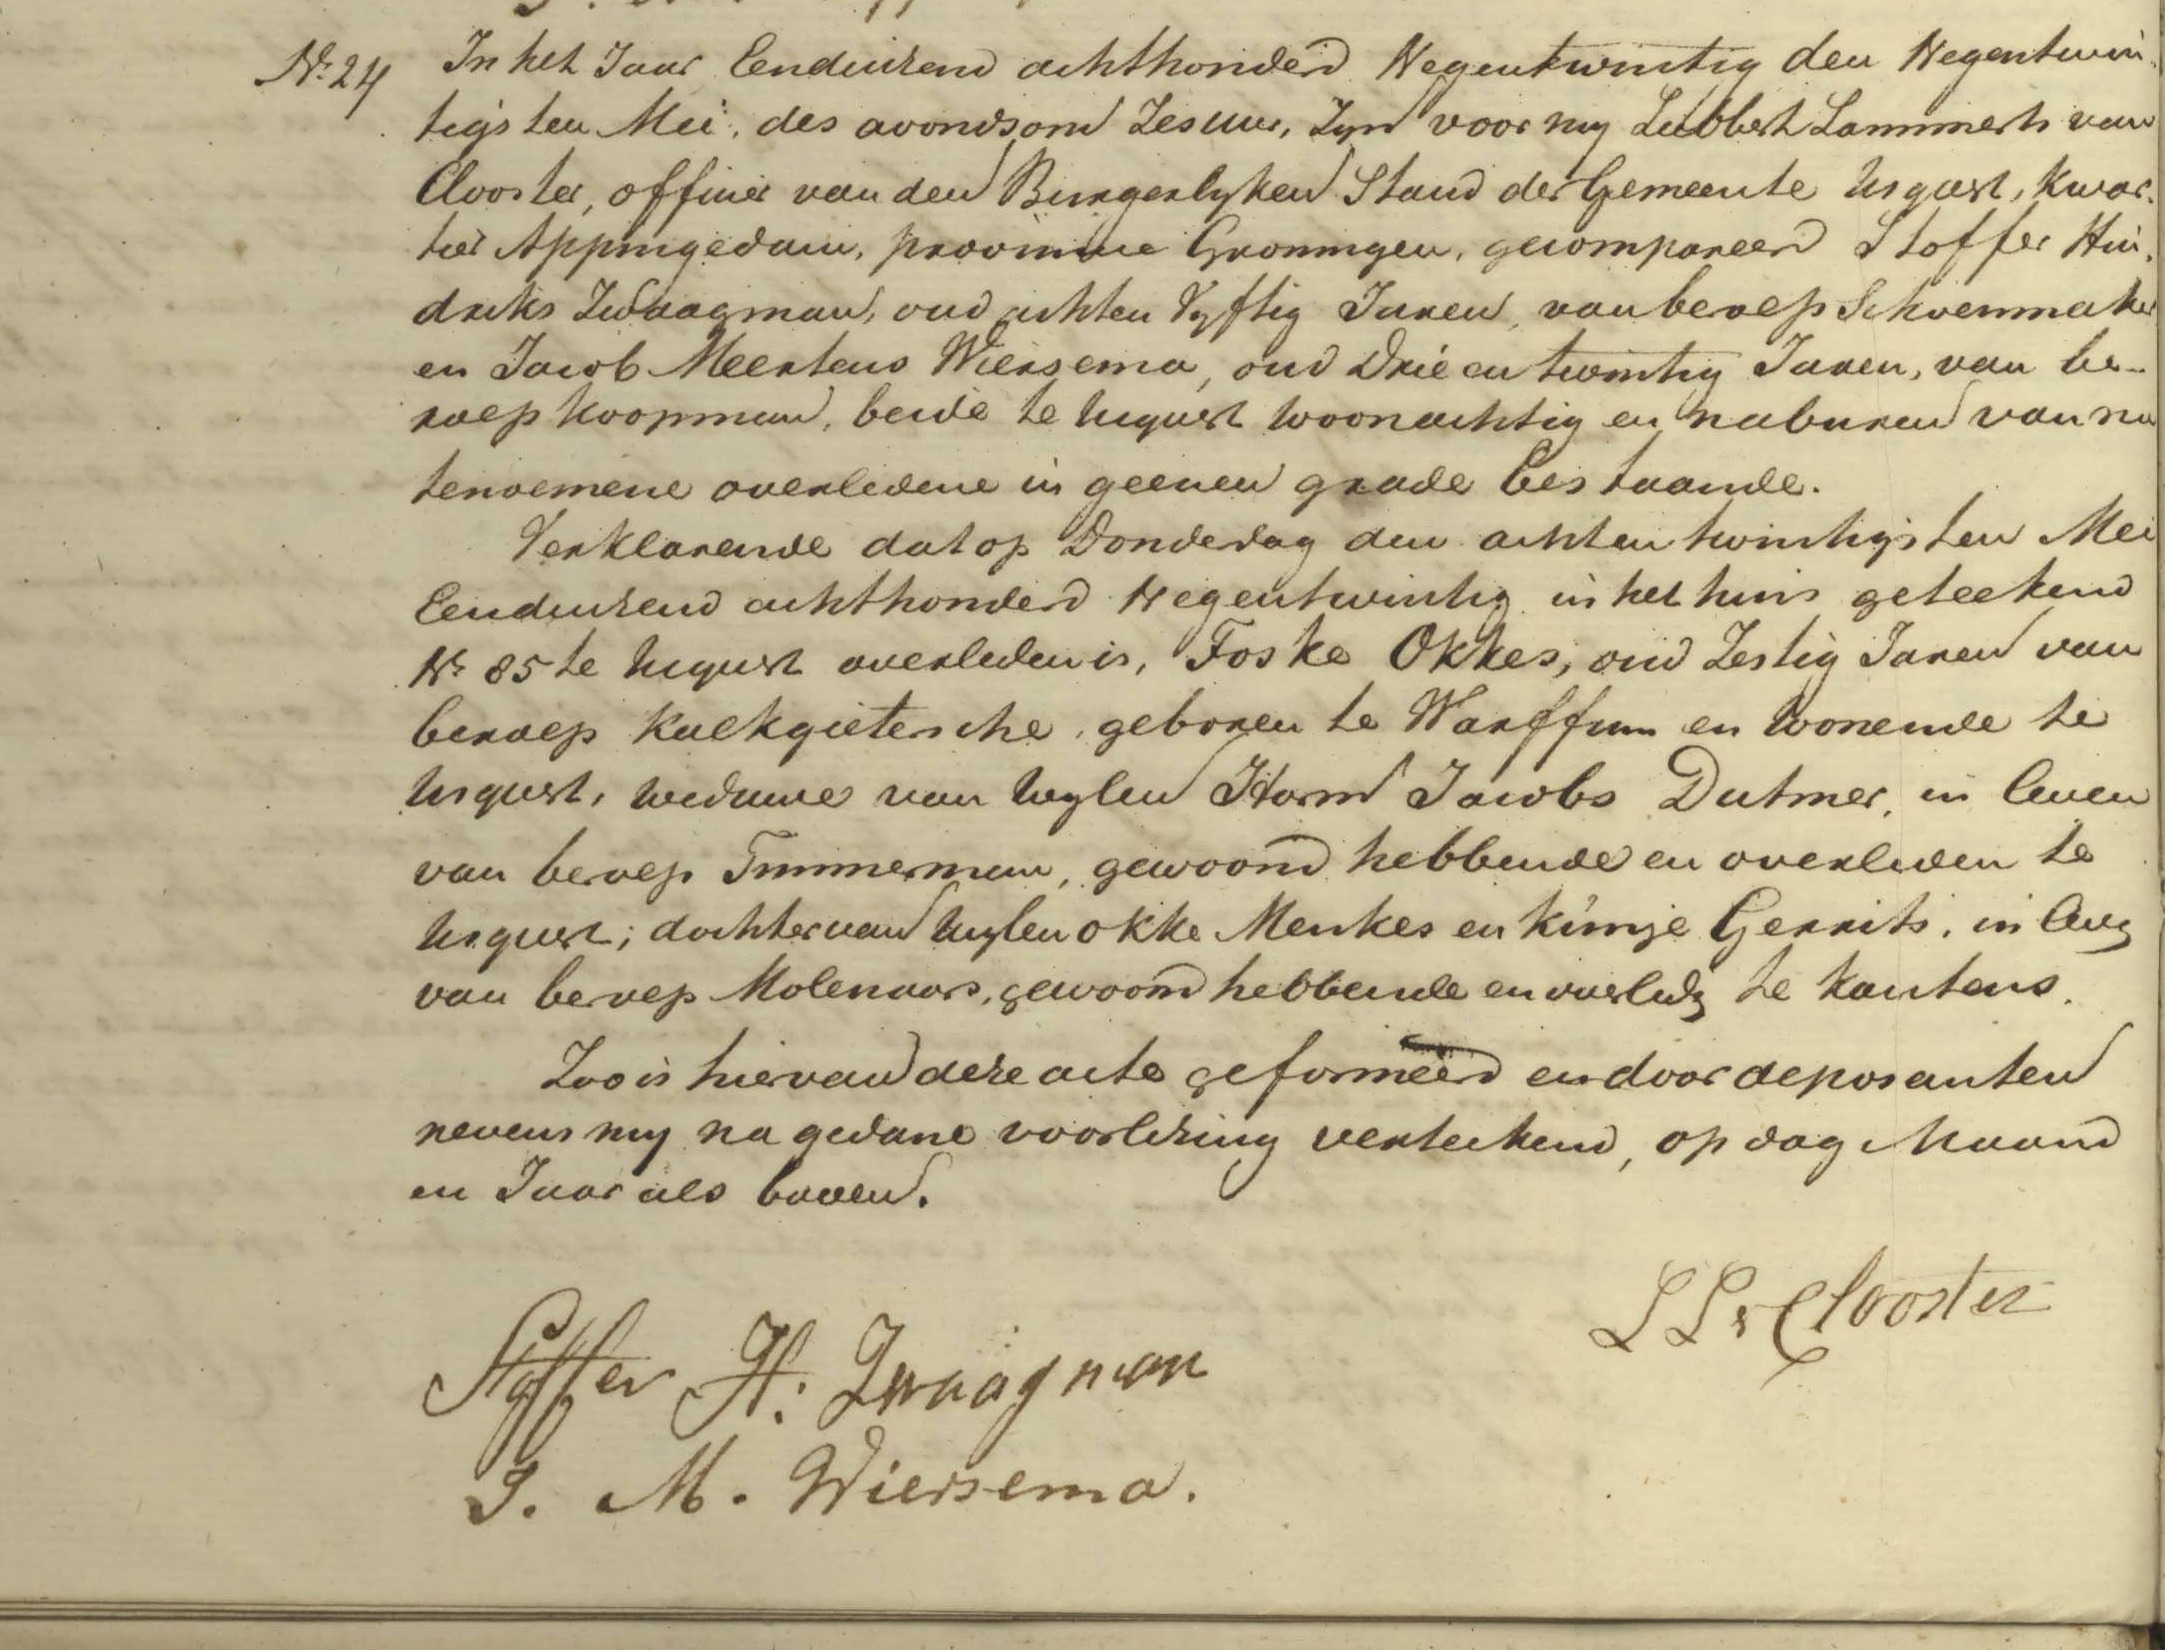 No. 24 In het Jaar Eenduizend achthonderd Negentwintig den Negentwin-
tigsten Mei, des avonds om Zes uur, Zyn voor my Lubbert Lammerts van
Clooster, officier van den Burgerlyken Stand der Gemeente Usquert, kwar-
tier Appingedam, provincie Groningen, gecompareerd Stoffer Hin-
driks Zwaagman, oud achten Vyftig Jaren, van beroep Schoenmaker
en Jacob Meertens Wiersema, oud Drie en twintig Jaren, van be-
roep koopman, beide te Usquert woonachtig en naburen van na
tenoemene overledene in geenen grade bestaande.
Verklarende dat op Donderdag den achtentwintigsten Mei
Eenduizend achthonderd Negentwintig in het huis geteekend
No. 85 te Usquert overleden is, Foske Okkes, oud Zestig Jaren van
beroep koekgietersche, geboren te Warffum en wonende te
Usquert, weduwe van wylen Harm Jacobs Dutmer, in leven
van beroep Timmerman, gewoond hebbende en overleden te
Usquert; dochter van wylen Okke Menkes en Kimje Gerrits, in leven
van beroep Molenaars, gewoond hebbende en overleden te Kantens.
Zoo is hiervan deze acte geformeerd en door deposanten
nevens my na gedane voorlezing verteekend, op dag Maand
en Jaar als boven.
L L v Clooster
Stoffer H. Zwaagman
J. M. Wiersema.